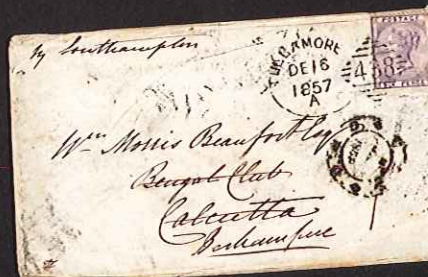 by Southampton
TULLAMORE
DE 16
1857
A
438
POSTAGE
SIX PENCE
Wm Morris Beaufort Esq
Bengal Club
Calcutta
Berhampore